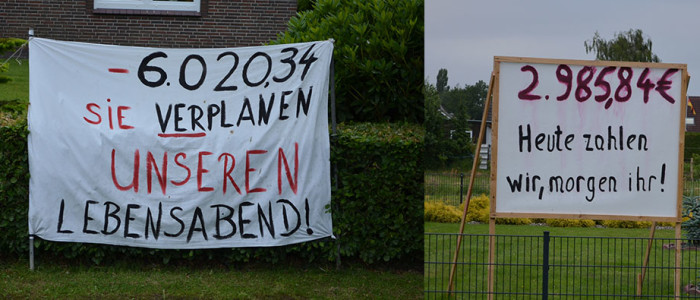 - 6.020,34
SIE VERPLANEN
UNSEREN
LEBENSABEND!
2.985,84€
Heute zahlen
wir, morgen ihr!